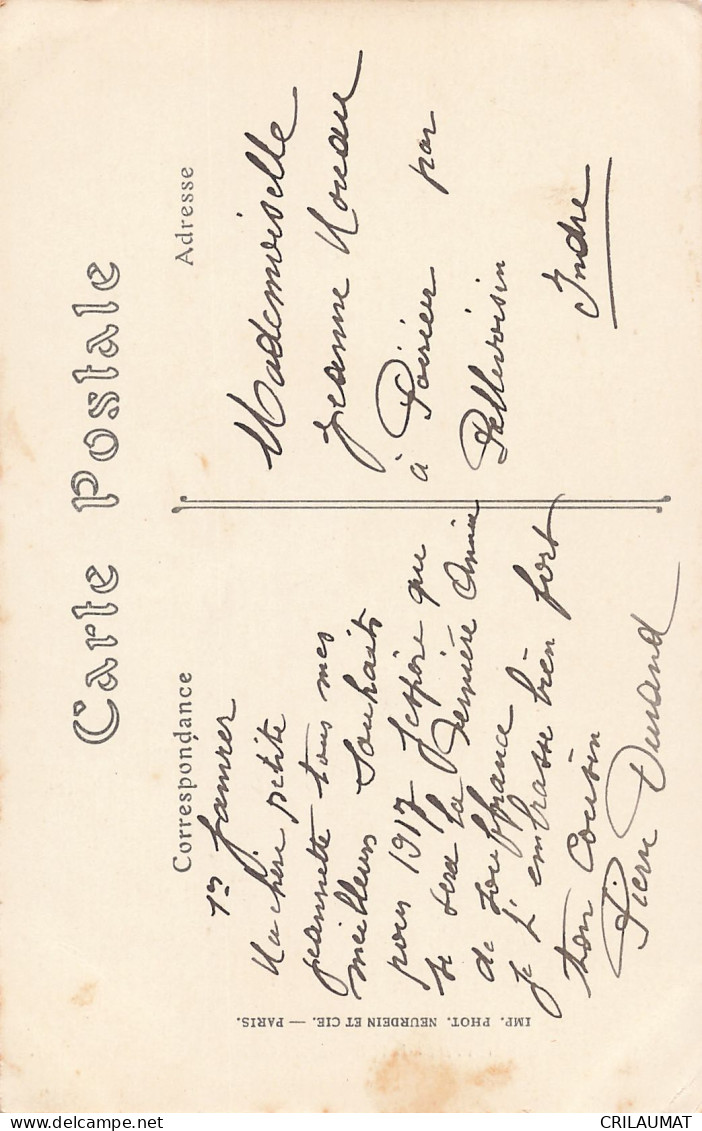 Carte Postale
Correspondance
1er janvier
Ma chère petite
jeannette tous mes
meilleurs souhaits
pour 1917 J'espère que
se sera la Dernière Année
de souffrance
je t'embrasse bien fort
ton cousin
Pierre Durand
Adresse
Mademoiselle
Jeanne
à Poirier par
Pellevoisin
Indre
IMP. PHOT. NEURDEIN ET CIE. — PARIS.
delcampe.net
CRILAUMAT